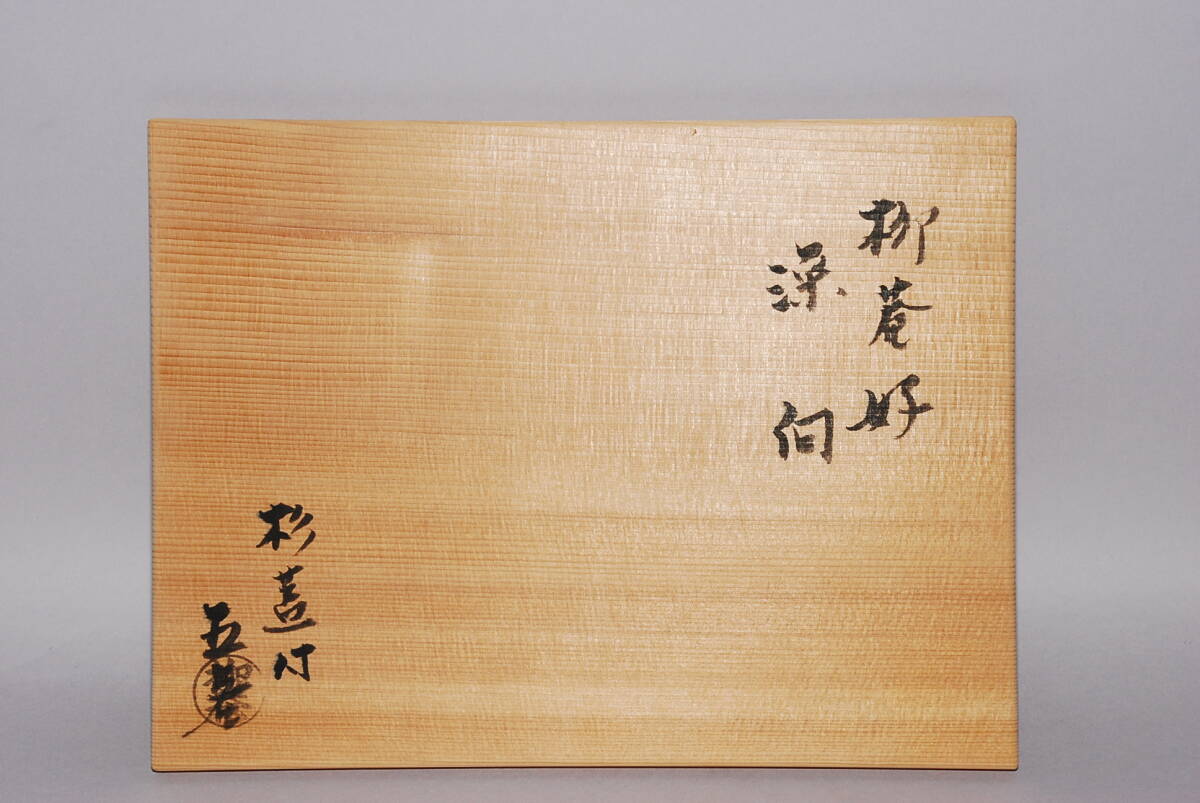 柳菴好
深向
杉蓋付
五